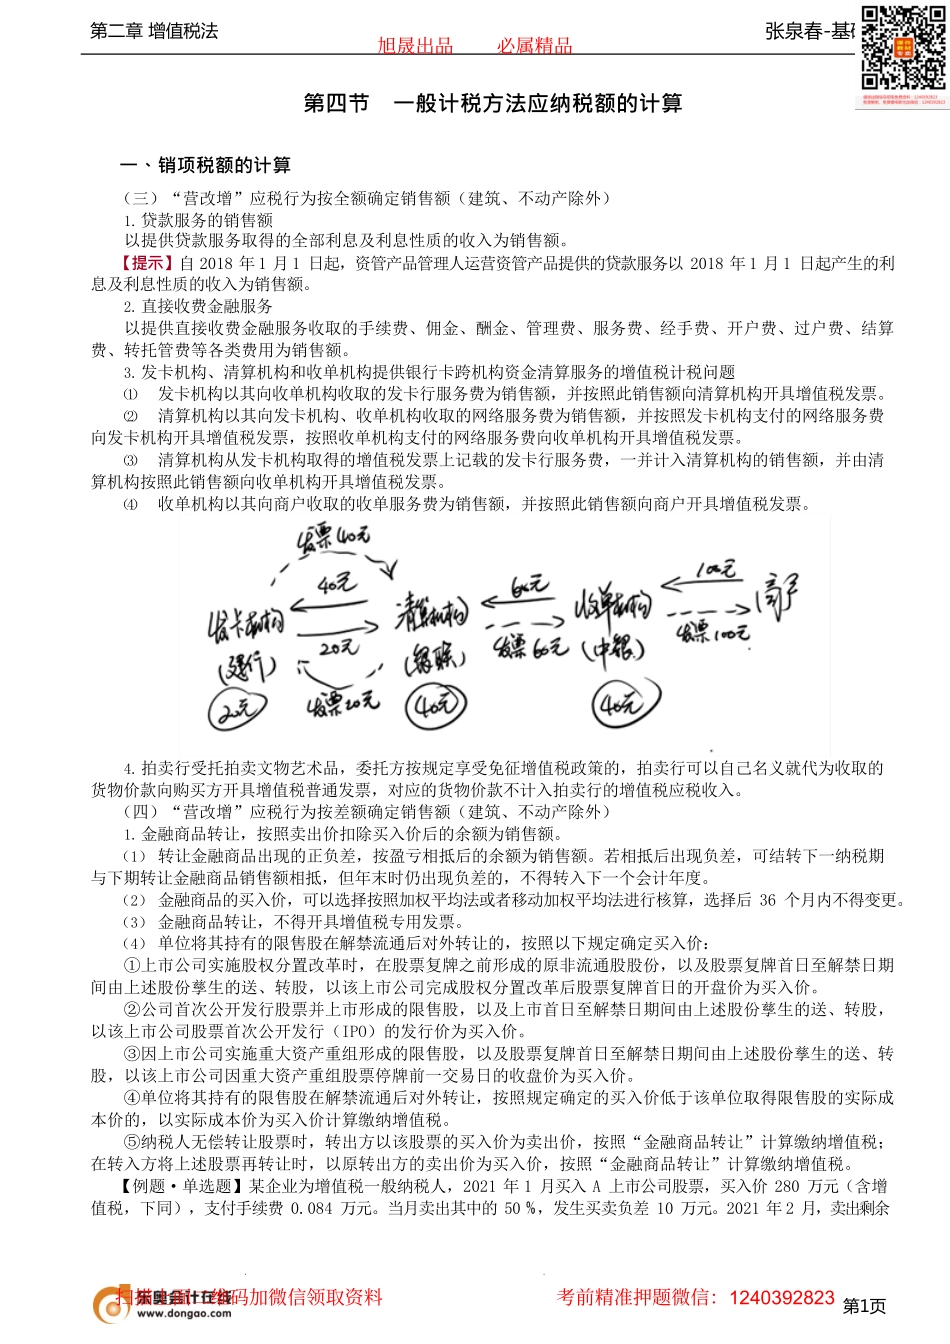 第二章 增值税法
张泉春-基础
旭晟出品 必属精品
第四节 一般计税方法应纳税额的计算
一、销项税额的计算
（三）“营改增”应税行为按全额确定销售额（建筑、不动产除外）
1. 贷款服务的销售额
以提供贷款服务取得的全部利息及利息性质的收入为销售额。
【提示】自 2018 年 1 月 1 日起，资管产品管理人运营资管产品提供的贷款服务以 2018 年 1 月 1 日起产生的利
息及利息性质的收入为销售额。
2. 直接收费金融服务
以提供直接收费金融服务收取的手续费、佣金、酬金、管理费、服务费、经手费、开户费、过户费、结算
费、转托管费等各类费用为销售额。
3. 发卡机构、清算机构和收单机构提供银行卡跨机构资金清算服务的增值税计税问题
⑴ 发卡机构以其向收单机构收取的发卡行服务费为销售额，并按照此销售额向清算机构开具增值税发票。
⑵ 清算机构以其向发卡机构、收单机构收取的网络服务费为销售额，并按照发卡机构支付的网络服务费
向发卡机构开具增值税发票，按照收单机构支付的网络服务费向收单机构开具增值税发票。
⑶ 清算机构从发卡机构取得的增值税发票上记载的发卡行服务费，一并计入清算机构的销售额，并由清
算机构按照此销售额向收单机构开具增值税发票。
⑷ 收单机构以其向商户收取的收单服务费为销售额，并按照此销售额向商户开具增值税发票。
发票40元
40元 60元 100元
发卡机构 清算机构 收单机构 商户
20元 发票60元 发票100元
(建行) (银联) (中银)
发票20元
20元 40元 40元
4. 拍卖行受托拍卖文物艺术品，委托方按规定享受免征增值税政策的，拍卖行可以自己名义就代为收取的
货物价款向购买方开具增值税普通发票，对应的货物价款不计入拍卖行的增值税应税收入。
（四）“营改增”应税行为按差额确定销售额（建筑、不动产除外）
1. 金融商品转让，按照卖出价扣除买入价后的余额为销售额。
（1） 转让金融商品出现的正负差，按盈亏相抵后的余额为销售额。若相抵后出现负差，可结转下一纳税期
与下期转让金融商品销售额相抵，但年末时仍出现负差的，不得转入下一个会计年度。
（2） 金融商品的买入价，可以选择按照加权平均法或者移动加权平均法进行核算，选择后 36 个月内不得变更。
（3） 金融商品转让，不得开具增值税专用发票。
（4） 单位将其持有的限售股在解禁流通后对外转让的，按照以下规定确定买入价：
①上市公司实施股权分置改革时，在股票复牌之前形成的原非流通股股份，以及股票复牌首日至解禁日期
间由上述股份孳生的送、转股，以该上市公司完成股权分置改革后股票复牌首日的开盘价为买入价。
②公司首次公开发行股票并上市形成的限售股，以及上市首日至解禁日期间由上述股份孳生的送、转股，
以该上市公司股票首次公开发行（IPO）的发行价为买入价。
③因上市公司实施重大资产重组形成的限售股，以及股票复牌首日至解禁日期间由上述股份孳生的送、转
股，以该上市公司因重大资产重组股票停牌前一交易日的收盘价为买入价。
④单位将其持有的限售股在解禁流通后对外转让，按照规定确定的买入价低于该单位取得限售股的实际成
本价的，以实际成本价为买入价计算缴纳增值税。
⑤纳税人无偿转让股票时，转出方以该股票的买入价为卖出价，按照“金融商品转让”计算缴纳增值税；
在转入方将上述股票再转让时，以原转出方的卖出价为买入价，按照“金融商品转让”计算缴纳增值税。
【例题·单选题】某企业为增值税一般纳税人，2021 年 1 月买入 A 上市公司股票，买入价 280 万元（含增
值税，下同），支付手续费 0.084 万元。当月卖出其中的 50％，发生买卖负差 10 万元。2021 年 2 月，卖出剩余
东奥会计在线
www.dongao.com
码加微信领取资料
考前精准押题微信：1240392823
第1页